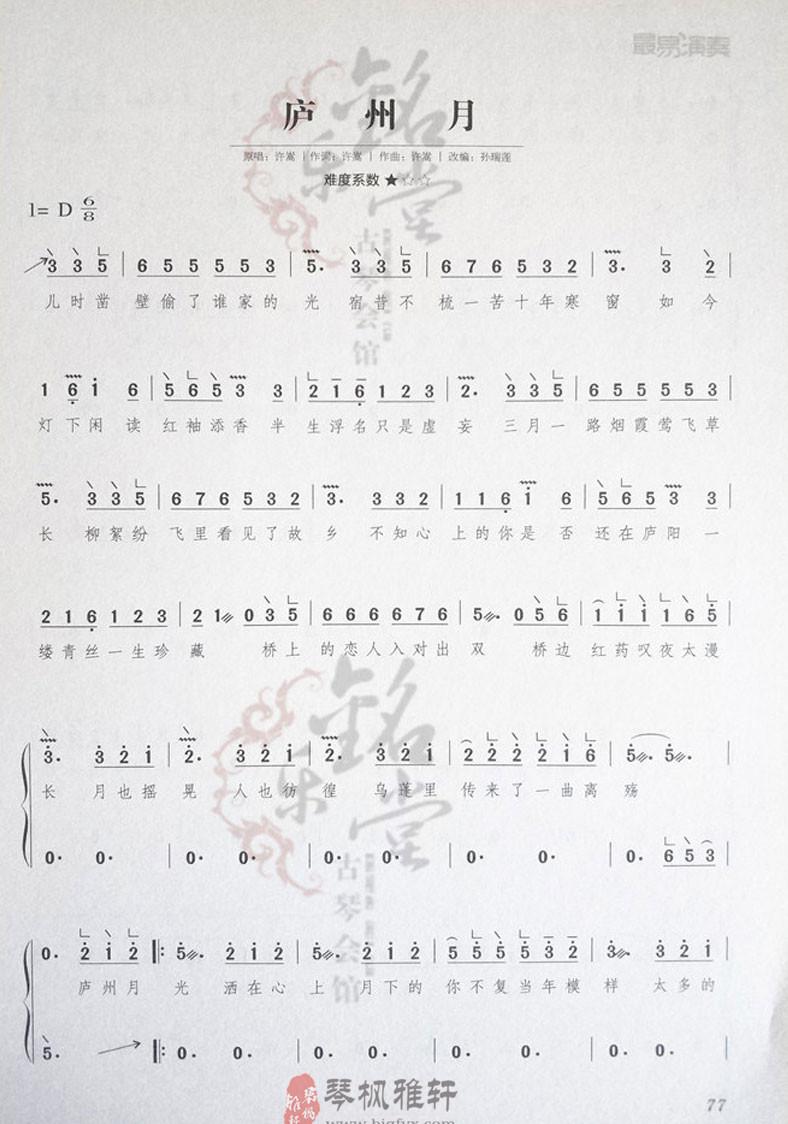 最易演奏
庐州月
原唱：许嵩 | 作词：许嵩 | 作曲：许嵩 | 改编：孙瑞莲
难度系数 ★☆☆
1= D 6/8
3 3 5 | 6 5 5 5 5 3 | 5. 3 3 5 | 6 7 6 5 3 2 | 3. 3 2
儿时凿壁偷了谁家的光宿昔不梳一苦十年寒窗如今
1 6 i 6 | 5 6 5 3 3 3 | 2 1 6 1 2 3 | 2. 3 3 5 | 6 5 5 5 5 3
灯下闲读红袖添香半生浮名只是虚妄三月一路烟霞莺飞草
5. 3 3 5 | 6 7 6 5 3 2 | 3. 3 3 2 | 1 1 6 i 6 | 5 6 5 3 3
长柳絮纷飞里看见了故乡不知心上的你是否还在庐阳一
2 1 6 1 2 3 | 2 1 0 3 5 | 6 6 6 6 7 6 | 5. 0 5 6 | i i i i 6 5
缕青丝一生珍藏桥上的恋人入对出双桥边红药叹夜太漫
3. 3 2 i | 2. 3 2 i | 2. 3 2 i | 2 2 2 2 i 6 | 5. 5. |
长月也摇晃人也彷徨乌蓬里传来了一曲离殇
0. 0. | 0. 0. | 0. 0. | 0. 0. | 0. 6 5 3 |
0. 2 i 2 |: 5. 2 i 2 | 5. 2 i 2 | 5 5 5 5 2 2 | 3. 3. 2 2 |
庐州月光洒在心上月下的你不复当年模样太多的
5. |: 0. 0. | 0. 0. | 0. 0. | 0. 0. |
铭乐堂
古琴会馆
铭乐堂
古琴会馆
琴枫雅轩
77